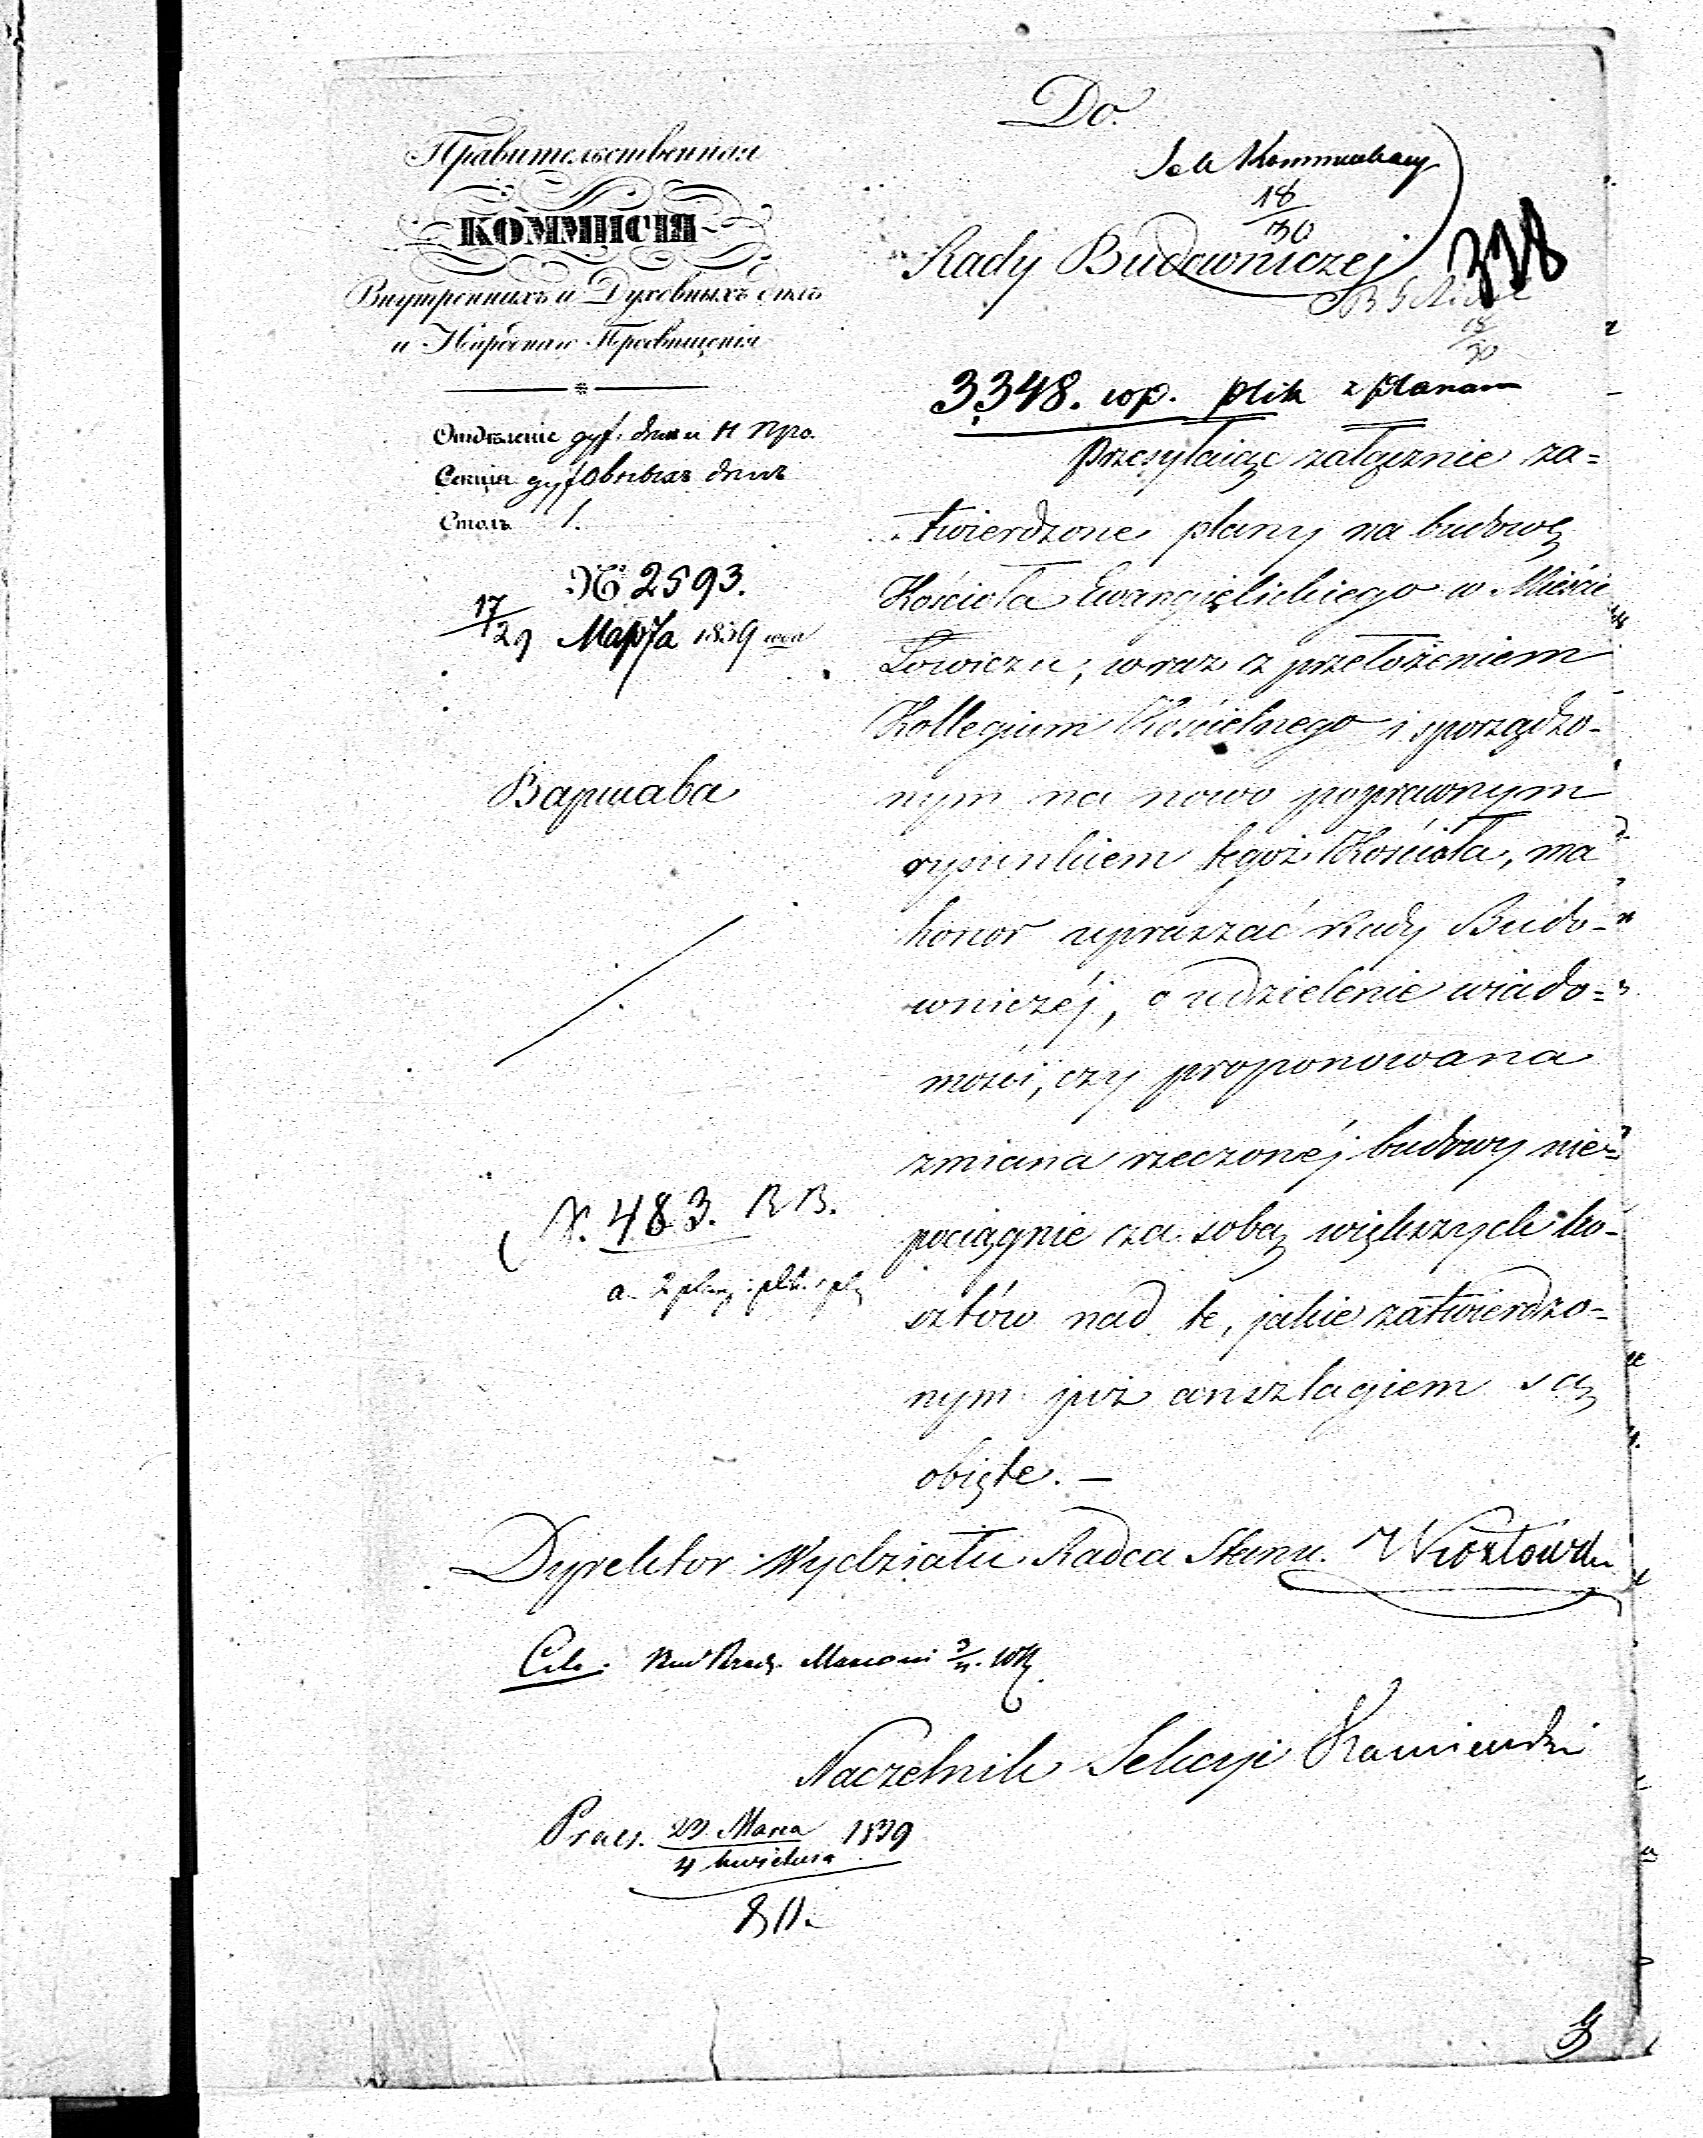 Правительственная
КОММИСІЯ
Внутреннихъ и Духовныхъ дѣлъ
и Народнаго Просвѣщенія
Отдѣленіе дух. дѣлъ и Н Про.
Секція духовныхъ дѣлъ
Столъ 1.
№ 2593.
17/29 Марта 1839 года
Варшава
N. 483. RB.
Do
18/30
Rady Budowniczej
338
18/30
3348. wp. plik z planam
Przesyłaiąc załącznie za=
twierdzone plany na budowę
Kościoła Ewangielickiego w Mieście
Łowiczu, wraz z przełożeniem
Kollegium Kościelnego i sporządzo-
nym na nowo poprawnym
rysunkiem tegoż Kościoła, ma
honor upraszać Rady Budo-
wniczéj, o udzielenie wiado=
mości, czy proponowana
zmiana rzeczonéj budowy nie=
pociągnie za sobą większych ko-
sztów nad te, jakie zatwierdzo-
nym już anszlagiem są
obięte. —
Dyrektor Wydziału Radca Stanu.
Marconi
Naczelnik Sekcyi Kamieński
Praes. 23 Marca / 4 kwietnia 1839